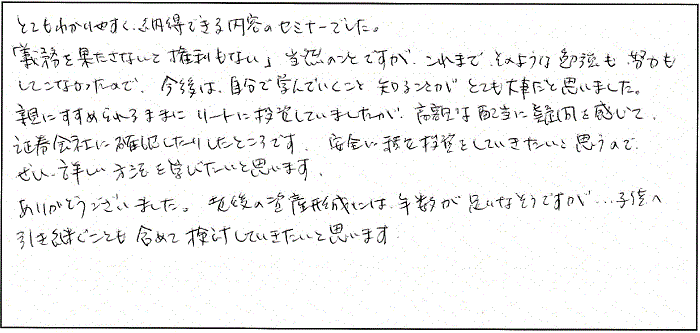 とてもわかりやすく、納得できる内容のセミナーでした。
「義務を果たさないと権利もない」当然のことですが、これまで、そのような勉強も努力も
してこなかったので、今後は、自分で学んでいくこと知ることがとても大事だと思いました。
親にすすめられるままにリートに投資していましたが、高額な配当に疑問を感じて、
証券会社に確認したりしたところです。安全に積立投資をしていきたいと思うので、
ぜひ、詳しい方法を学びたいと思います。
ありがとうございました。老後の資産形成には、年数が足りなそうですが…子供へ
引き継ぐことも含めて検討していきたいと思います。